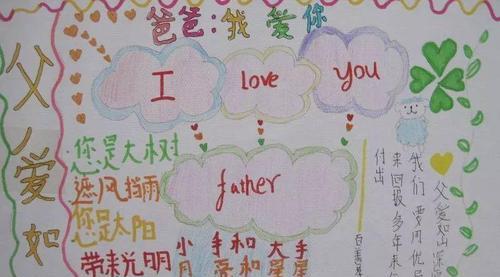 爸爸:我爱你
父爱如
I love You
father
您是大树
遮风挡雨
您是太阳
带来光明
小手和大手
月亮和星星
父爱如山
我们要用优
来回报多年来
付出
百善